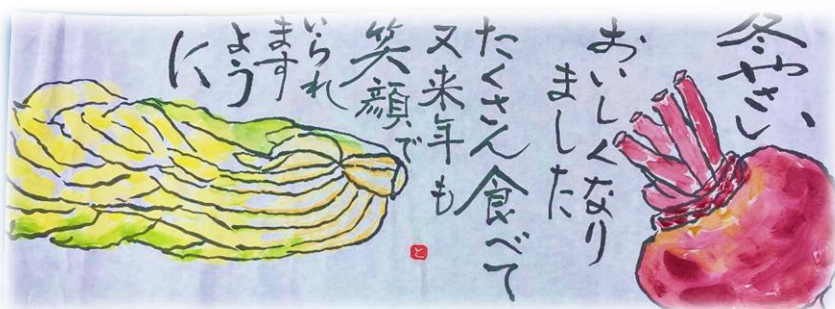 冬やさい
おいしくなり
ました
たくさん食べて
又来年も
笑顔で
いられ
ます
よう
に
と